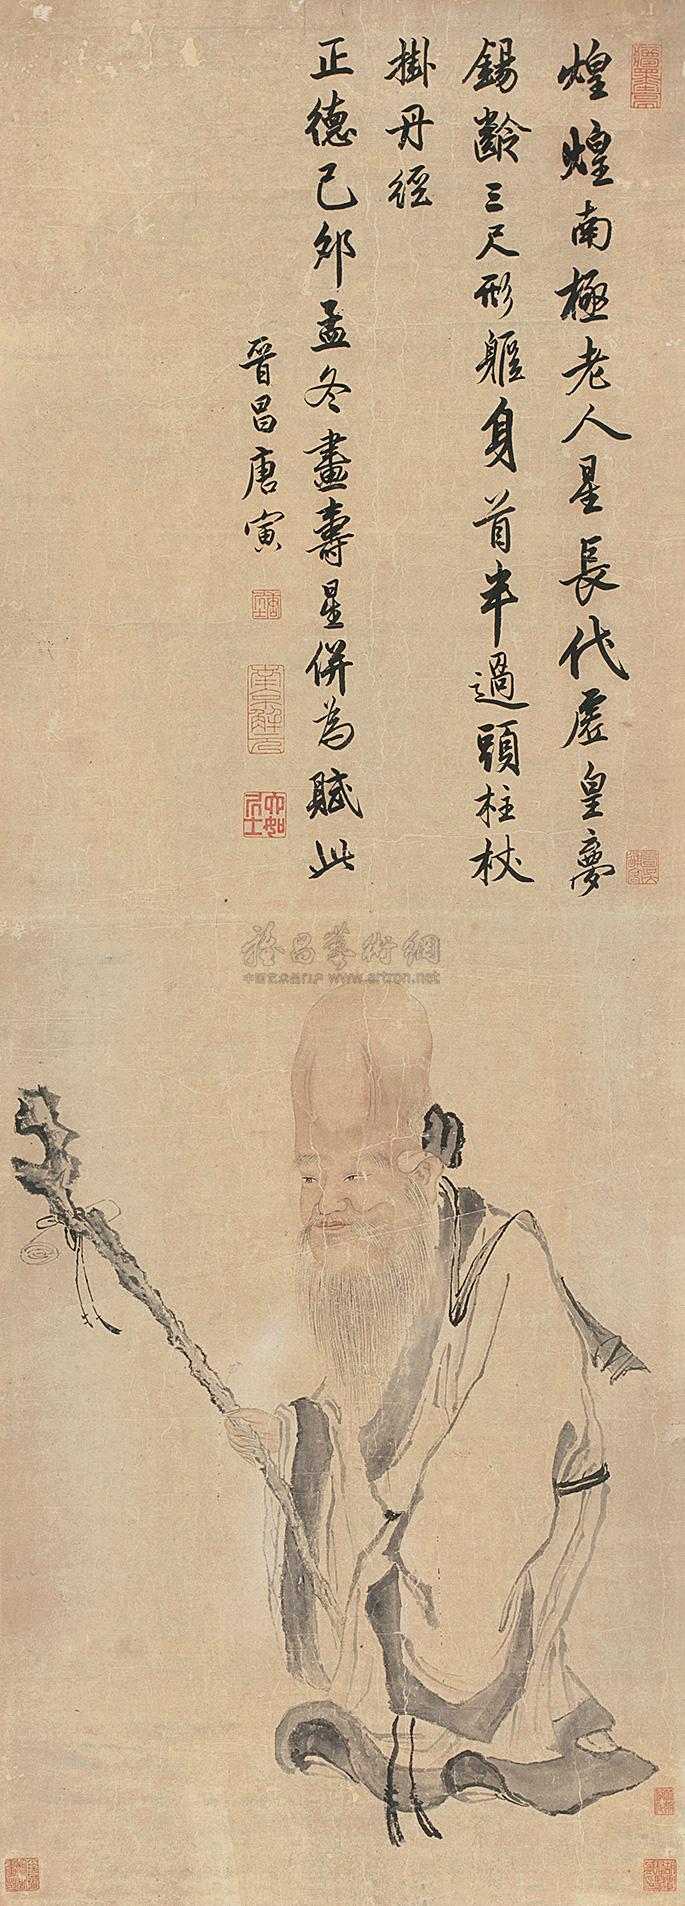 煌煌南極老人星長代虛皇夢
錫齡三尺形軀身首半過頭柱杖
掛丹經
正德己卯孟冬畫壽星併為賦此
晉昌唐寅
南京解元
六如居士
雅昌藝術網
中国艺术品门户 www.artron.net